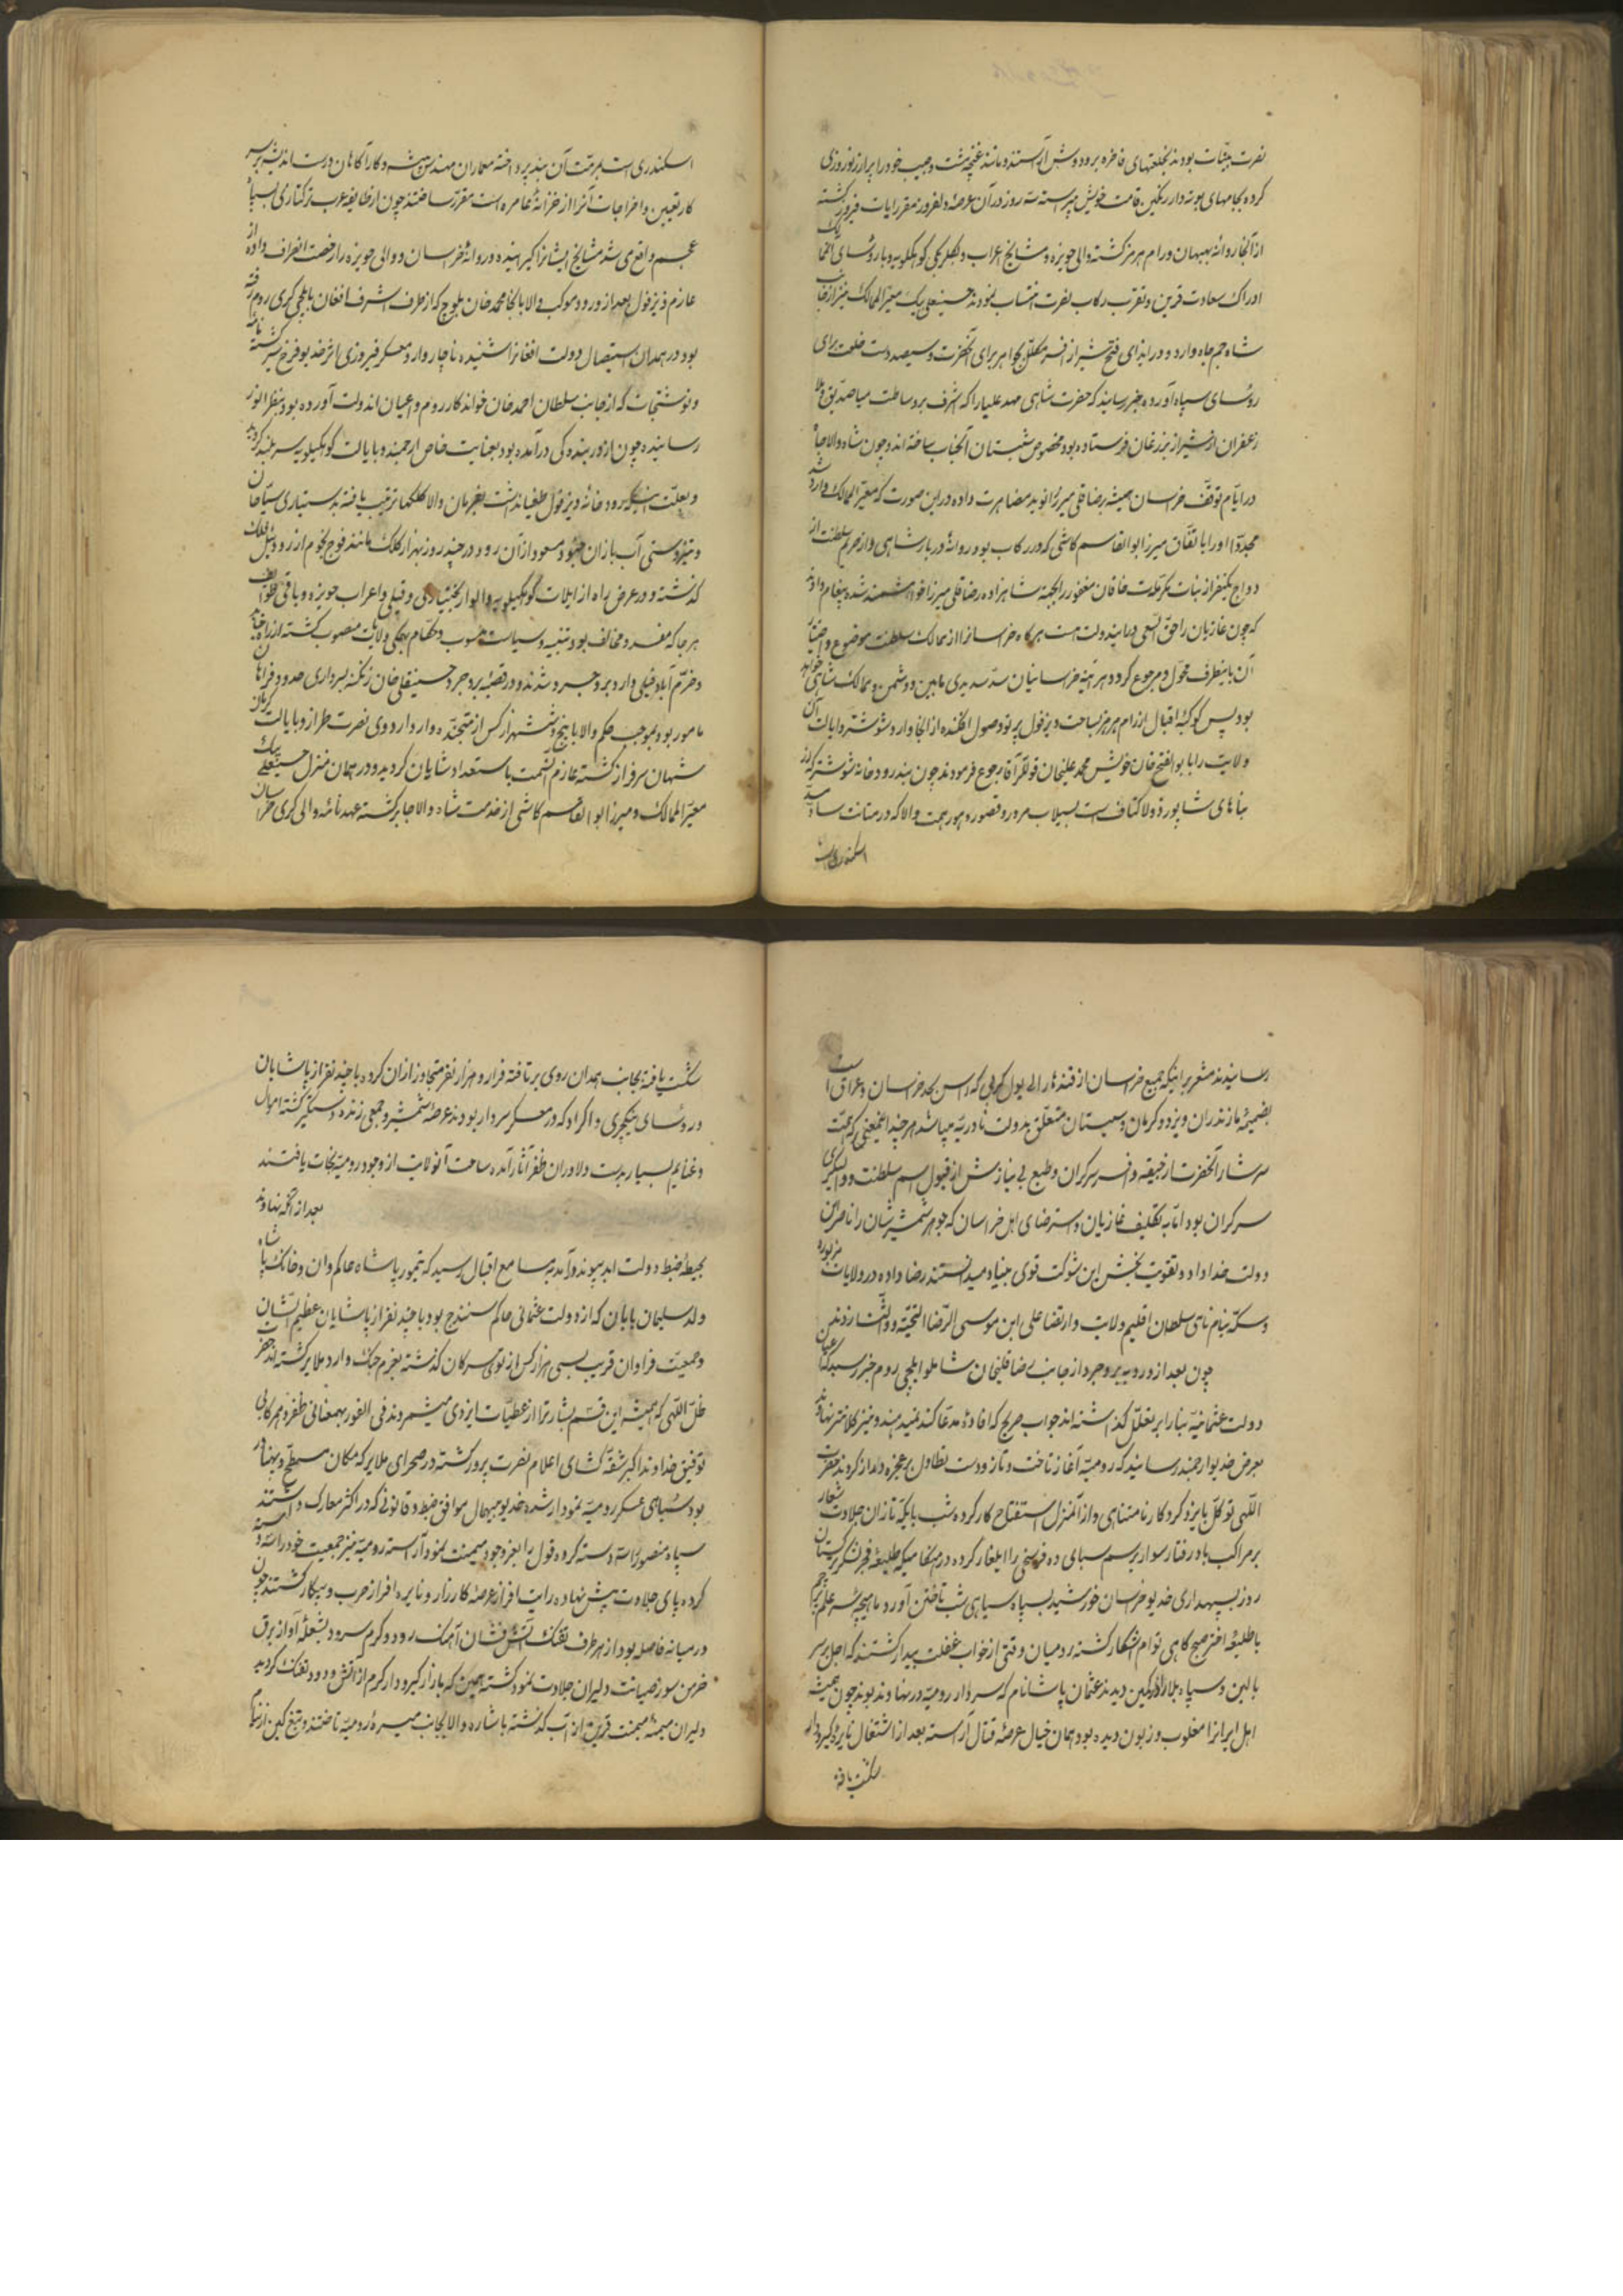 نصرت بینات بودند بخلعتهای فاخره بر و دوش آراسته و مانند غنچه مشت و جیب خود را پر از زر نوروزی
کرده بجامهای بوته دار رنگین قامت خویش پیراسته سه روز در آن عرصهٔ دلفروز مقر رایات فیروز گشته
از آنجا روانه بهبهان و رام هرمز گشته والی حویزه و مشایخ اعراب و بیگلربیگی کوهکیلویه و با رؤسای آنجا
ادراک سعادت قرین و تقرب رکاب نصرت انتساب نمودند حسنعلی بیک معیر الممالک نیز از جانب
شاه جم جاه وارد و در ازای فتح شیراز افسر مکلل بجواهر برای آنحضرت و سیصد دست خلعت برای
رؤسای سپاه آورده خبر رسانید که حضرت شاهی مهد علیا را که اشرف بوساطت میاصدیق و ملا
زعفران از شیراز نزد غان فرستاده بود مخصوص شبستان آنجناب ساخته اند و چون شاه والا جاه
در ایام توقف خراسان همیشه رضا قلی میرزا نوید مضاهرت داده در این صورت که معیر الممالک وارد شد
مجددا او را باتفاق میرزا ابوالقاسم کاشی که در رکاب بود روانهٔ دربار شاهی و از حریم سلطنت از
دواج یکنفر از بنات مکرمات خاقان مغفور را بجهة شاهزاده رضا قلی میرزا خواهشمند شده پیغام دادند
که چون غازیان را حق السعی در اینمدولت هست هرگاه خراسانرا از ممالک سلطنت موضوع و اختیار
آن باینطرف محول و مرجوع گردد هر آینه خراسانیان سد سدیدی مابین دشمن و ممالک شاهی خواهد
بود پس کوکبهٔ اقبال از رام هرمز بساحت دیزفول پرتو وصول افکنده از آنجا وارد شوشتر و ایالت آن
ولایت را بابوالفتح خان خویش محمد علیخان قوللر آقاسی رجوع فرمودند چون بند رودخانه شوشتر که از
بناهای شاپور ذوالاکتاف است بسیلاب مرور و قصور دهور همت والا که در متانت سد
اسکندری است
اسکندری است بمرمت آن بند پرداخته معماران مهندس پیشه و کارآگاهان درست اندیشه بر سر
کار تعیین و اخراجات آنرا از خزانهٔ عامره مقرر ساختند چون از طایفه عرب ترکتازی بسپاه
عجم واقع می شد مشایخ ایشانرا گیرانیده و روانهٔ خراسان و والی حویزه را رخصت انصراف داده از
عازم دیزفول بعد از ورود موکب والا بآنجا محمد خان بلوچ که از طرف اشرف افغان بایلچی گری روم رفته
بود در همدان استیصال دولت افغانرا شنیده ناچار وارد معسکر فیروزی اثر خدیو فرخ سیر گشته نامه
و نوشتجات که از جانب سلطان احمد خان خواندکار روم و اعیان آندولت آورده بود بنظر انور
رسانیده چون از در بندهگی درآمده بود بعنایت خاص ارجمند و بایالت کوهکیلویه سربلند گردید
و بعلت اینکه رودخانهٔ دیزفول طغیان داشت بفرمان والا کلکها ترتیب یافته بدستیاری سباحان
و تیزدستی آب بازان عبور و مسعود از آن رود در چند روز بهزار کلک مانند فوج نجوم از رود نیل فلک
گذشته و در عرض راه از ایلات کوهکیلویه و الوار بختیاری و فیلی و اعراب حویزه و باقی طوایف
هر جا که مفسد و مخالف بود تنبیه و سیاست محسوب و حکام بهمگی ولایات منصوب گشته از راه
و خرم آباد فیلی وارد بروجرد شدند و در قصبه بروجرد حسینقلی خان زنگنه بسرداری حدود
مامور بود بموجب حکم والا با پنج شش هزار کس از متجنده وارد اردوی نصرت طراز و بایالت کرمان
شهان سرافراز گشته عازم آنسمت باستعداد شایان گردید و در همان منزل حسنعلی بیک
معیر الممالک و میرزا ابوالقاسم کاشی از خدمت شاه والا جاه برگشته عهدنامه والی گری خراسان
رسانیدند مشعر بر اینکه جمیع خراسان از قندهار الی پول کرپی که راس حد خراسان و عراق است
بضمیمهٔ مازندران و یزد و کرمان و سیستان متعلق بدولت نادریه میباشد هر چند اینمعنی که همت
سرشار آنحضرت از خیقه و افسر سرگران و طبع بی نیازش از قبول اسم سلطنت و داوری
سرگران بود اما به تکلیف غازیان و استرضای اهل خراسان که جوهر شمشیرشان را ناصر این
دولت خداداد و تقویت بخش این شوکت قوی بنیاد میدانستند رضا داده در ولایات مزبوره
و سکه بنام نامی سلطان اقلیم ولایت و ارتضا علی ابن موسی الرضا التحیة و الثنا زدند
چون بعد از ورود به بروجرد از جانب رضا قلیخان شاملو ایلچی روم خبر رسید که اعیان
دولت عثمانیه بنا را بر تعلل گذاشته اند جواب صریح که افادهٔ مدعا کند نمیدهند و نیز کلانتر نهاوند
بعرض خدیو ارجمند رسانید که رومیه آغاز تاخت و تاز و دست تطاول بر عجزه دراز کردند حضرت
اللهی توکل بایزد کردگار نامتناهی و از آنمنزل استفتاح کار کرده شب با یکه تازان جلادت شعار
بر مراکب باد رفتار سوار برسم سپاهی ده فرسخی را ایلغار کرده در هنگامیکه طلیعهٔ فجر لشکر کیستان
روز بسپهداری خدیو خراسان خورشید بسپاه سیاهی شب تاختن آورد ماهیچهٔ علم
با طلیعهٔ اختر صبحگاهی توام آشکار گشته رومیان وقتی از خواب غفلت بیدار گشتند که اجل بر سر
بالین و سپاه بلا را در کمین دیدند عثمان پاشا نام که سردار رومیه در نهاوند بود چون همیشه
اهل ایرانرا مغلوب و زبون دیده بود بهمان خیال عرصهٔ قتال آراسته بعد از اشتعال نایرهٔ گیرودار
شکست یافته
شکست یافته بجانب همدان روی برتافته فرار و هزار نفر متجاوز از آن گروه با چند نفر از پاشایان
و رؤسای ینکچری و اکراد که در معسکر سردار بودند عرضهٔ شمشیر و جمعی زنده دستگیر گشته اموال
و غنایم بسیار بدست دلاوران ظفر آثار آمده ساحت آنولایت از وجود رومیه نجات یافتند
بعد از آنکه نهاوند
بحیطهٔ ضبط دولت ابد پیوند درآمد بمسامع اقبال رسید که تیمور پاشاه حاکم وان و خانک پاشاه
ولد سلیمان بابان که از دولت عثمانی حاکم سنندج بود با چند نفر از پاشایان عظیم الشان
و جمعیت فراوان قریب بسی هزار کس از توی سرکان گذشته بعزم جنگ وارد ملایر گشته اند حضرت
ظل اللهی که همیشه این قسم بشارترا از عطیات ایزدی میشمردند فی الفور بهمعنانی ظفر و همرکابی
توفیق خداوند اکبر شقه گشای اعلام نصرت پرور گشته در صحرای ملایر که مکان مسطح و پهناور
بود سیاهی عسکر رومیه نمودار شده خدیو بیهمال موافق ضبط و قانونی که در اکثر معارک داشتند
سپاه منصور را دسته دسته کرده قول را بفر وجود میمنت نمود آراسته رومیه نیز جمعیت خود را دسته
کرده پای جلادت پیش نهاده رایت افراز عرصهٔ کارزار و نایره افراز حرب و پیکار گشتند چون
در میانه فاصله بود از هر طرف تفنک آتش فشان آهنگ رود و گرم سرود بشعلهٔ آواز برق
خرمن سوز صیانت دلیران جلادت نمود گشته همین که بازار گیرودار گرم از آتش و دود تفنک گردید
دلیران میمنهٔ میمنت قرین از آب گذشته باشاره والا بجانب میسرهٔ رومیه تاختند و تیغ کین از نیام